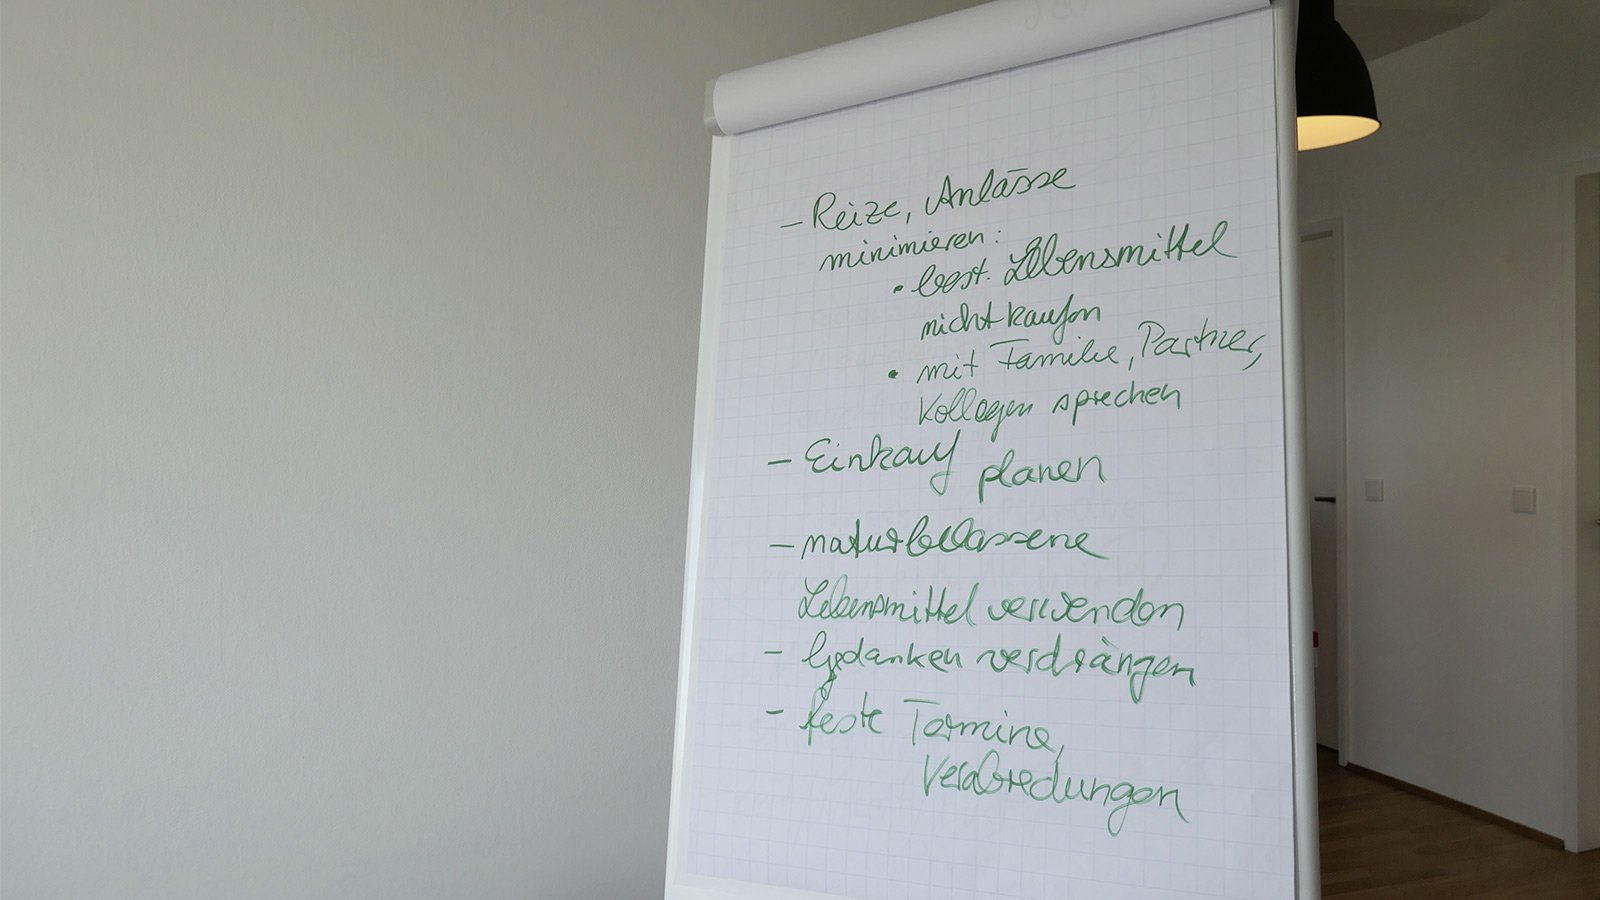 – Reize, Anlässe
minimieren:
• best. Lebensmittel
nicht kaufen
• mit Familie, Partner,
Kollegen sprechen
– Einkauf planen
– naturbelassene
Lebensmittel verwenden
– Gedanken verdrängen
– feste Termine,
Verabredungen